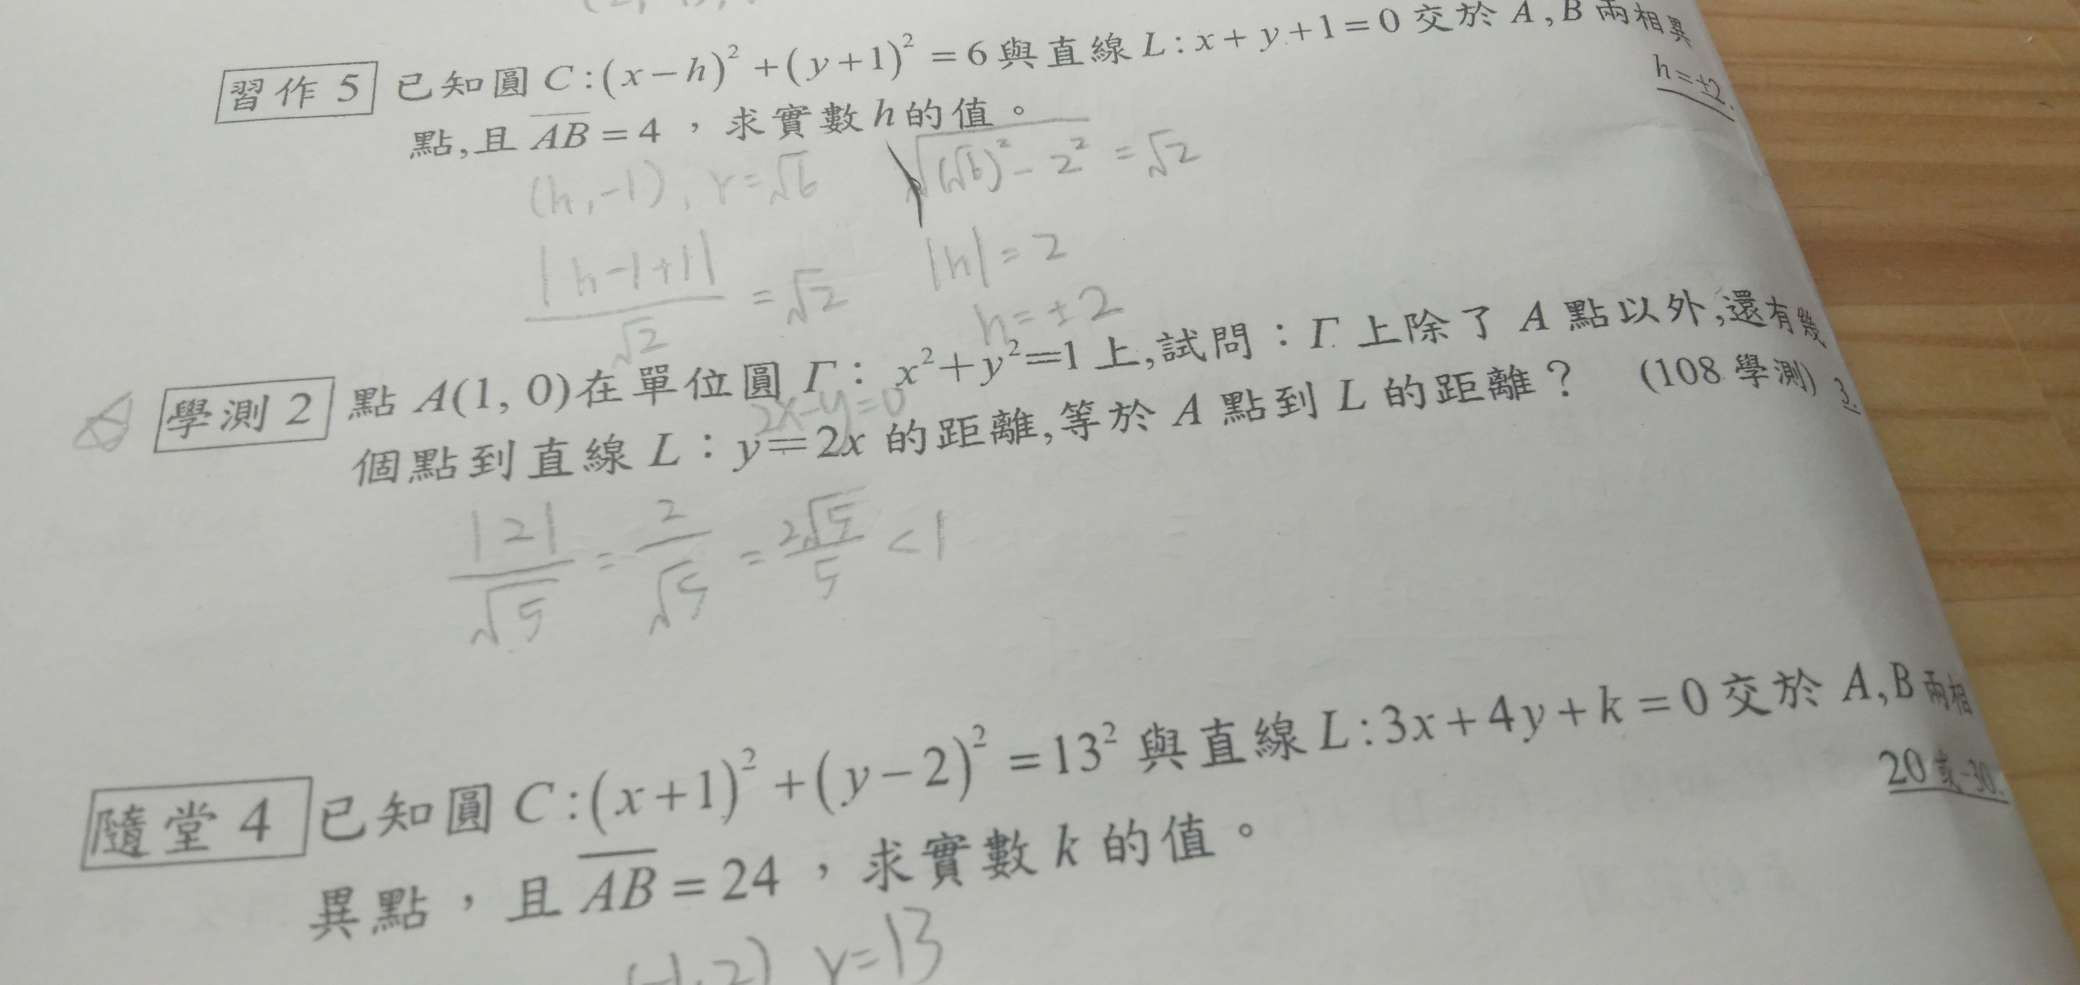 習作 5 已知圓 C:(x-h)²+(y+1)²=6與直線L:x+y+1=0 交於 A,B 兩相異
h=±2.
點,且 AB=4，求實數h的值。
(h,-1), r=√6 √((√6)²-2²) = √2
|h-1+1|/√2 = √2 |h|=2
h=±2
學測 2 點 A(1, 0)在單位圓 Γ: x²+y²=1 上,試問：Γ 上除了 A 點以外,還有幾
2x-y=0
個點到直線 L：y=2x 的距離,等於 A 點到 L 的距離？ (108 學測) 3.
|2|/√5 = 2/√5 = 2√5/5 <1
隨堂 4 已知圓 C:(x+1)²+(y-2)²=13² 與直線 L:3x+4y+k=0 交於 A,B 兩相
20 或 -30.
異點，且 AB=24，求實數 k 的值。
(-1,2) r=13